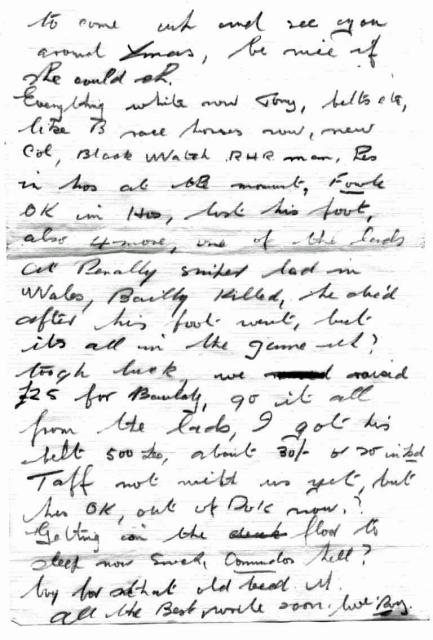 to come up and see you
around Xmas, be nice if
she could eh,
Everything white now Tony, belts etc,
like B race horses now, new
Col, Black Watch RHR man,
in hos at the moment, Fowle
OK in Hos, lost his foot,
also 4 more, one of the lads
at Penally sniper lad in
Wales, killed, he died
after his foot went, but
its all in the game eh?
tough luck, we raised
£25 for, go it all
from the lads, I got his
belt 500, about 30/- or so
Taff not with us yet, but
hes OK, out of now.?
Getting on the floor to
sleep now, hell?
for that old bed
All the Best, write soon. love Roy.